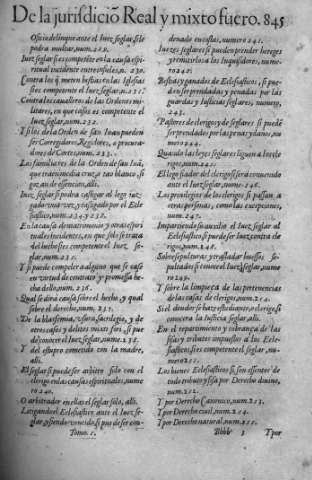 De la jurisdicio Real y mixto fuero. 845
Oficio delinque ante el Iuez seglar, si le
podra multar, num.229.
Iuez seglar si es competēte en la causa espi-
ritual incidente entre infieles, n. 230.
Contra los q̄ meten bestias en las Iglesias
si es competente el Iuez seglar, n.231.
Contra los caualleros de las Ordenes mi-
litares, en que casos es competente el
Iuez seglar, num.232.
Y si los de la Orden de san Iuan pueden
ser Corregidores, Regidores, o procura-
dores de Cortes, num.233.
Los familiares de la Orden de san Iuā,
que traen media cruz, o tao blanco, si
gozan de esencion, alli.
Iuez seglar si podra castigar al lego juz-
gado vna vez, y castigado por el Ecle
siastico, num.234. y 238.
En la causa de matrimonio y otras espiri
tuales incidentes, en que solo se trata
del hecho si es competente el Iuez se-
glar, num.235.
Y si puede compeler a alguno que se case
en virtud de contrato y promessa he-
cha dello, num.236.
Qual se dirà causa sobre el hecho, y qual
sobre el derecho, num.237.
De la blasfemia, vsura, sacrilegio, y de
otros casos y delitos mixti fori, si pue
de conocer el Iuez seglar, nume.238.
Y del estupro cometido con la madre,
alli.
El seglar si puede ser arbitro solo con el
clerigo en las causas espirituales, nume
ro 240.
O arbitrador en ellas el seglar solo, alli.
Lo gando el Eclesiastico ante el Iuez se-
glar, pidiendo vencido, si puede ser con-
Tomo. 1.
denado en costas, numero 241.
Iuezes seglares si pueden prender hereges
y remitirlos a los Inquisidores, nume-
ro 242.
Bestias y ganados de Eclesiasticos, si pue-
den ser prendados y penados por las
guardas y Iusticias seglares, numero,
243.
Pastores de clerigos y de seglares si puedē
ser prendados por las penas y daños, nu
mero 244.
Quando las leyes seglares liguen a los cle
rigos, num.245.
El lego fiador del clerigo si serà conuenido
ante el Iuez seglar, nume. 246.
Los preuilegios de los clerigos si passan a
otras personas, como las excepciones,
num.247.
Impartiendo su auxilio el Iuez seglar al
Eclesiastico, si puede ser Iuez contra cle
rigos, num.248.
Sobre sepulturas y trasladar huessos se-
pultados si conoce el Iuez seglar, nume
ro 249.
Y sobre la limpieza de las pertenencias
de las casas de clerigos, num.250.
Si el alnidor si hay estudiante, o clerigo, si
conocera la Iusticia seglar, alli.
En el repartimiento y cobrança de las
sisas y tributos impuestos a los Ecle-
siasticos, si es competente el seglar, nu-
mero 251.
Los bienes Eclesiasticos si son esentos de
todo tributo y sisa por Derecho diuino,
num.252.
Y por Derecho Canonico, num.253.
Y por Derecho ciuil, num.254.
Y por Derecho natural, num.255.
Bbbb 3 Y por